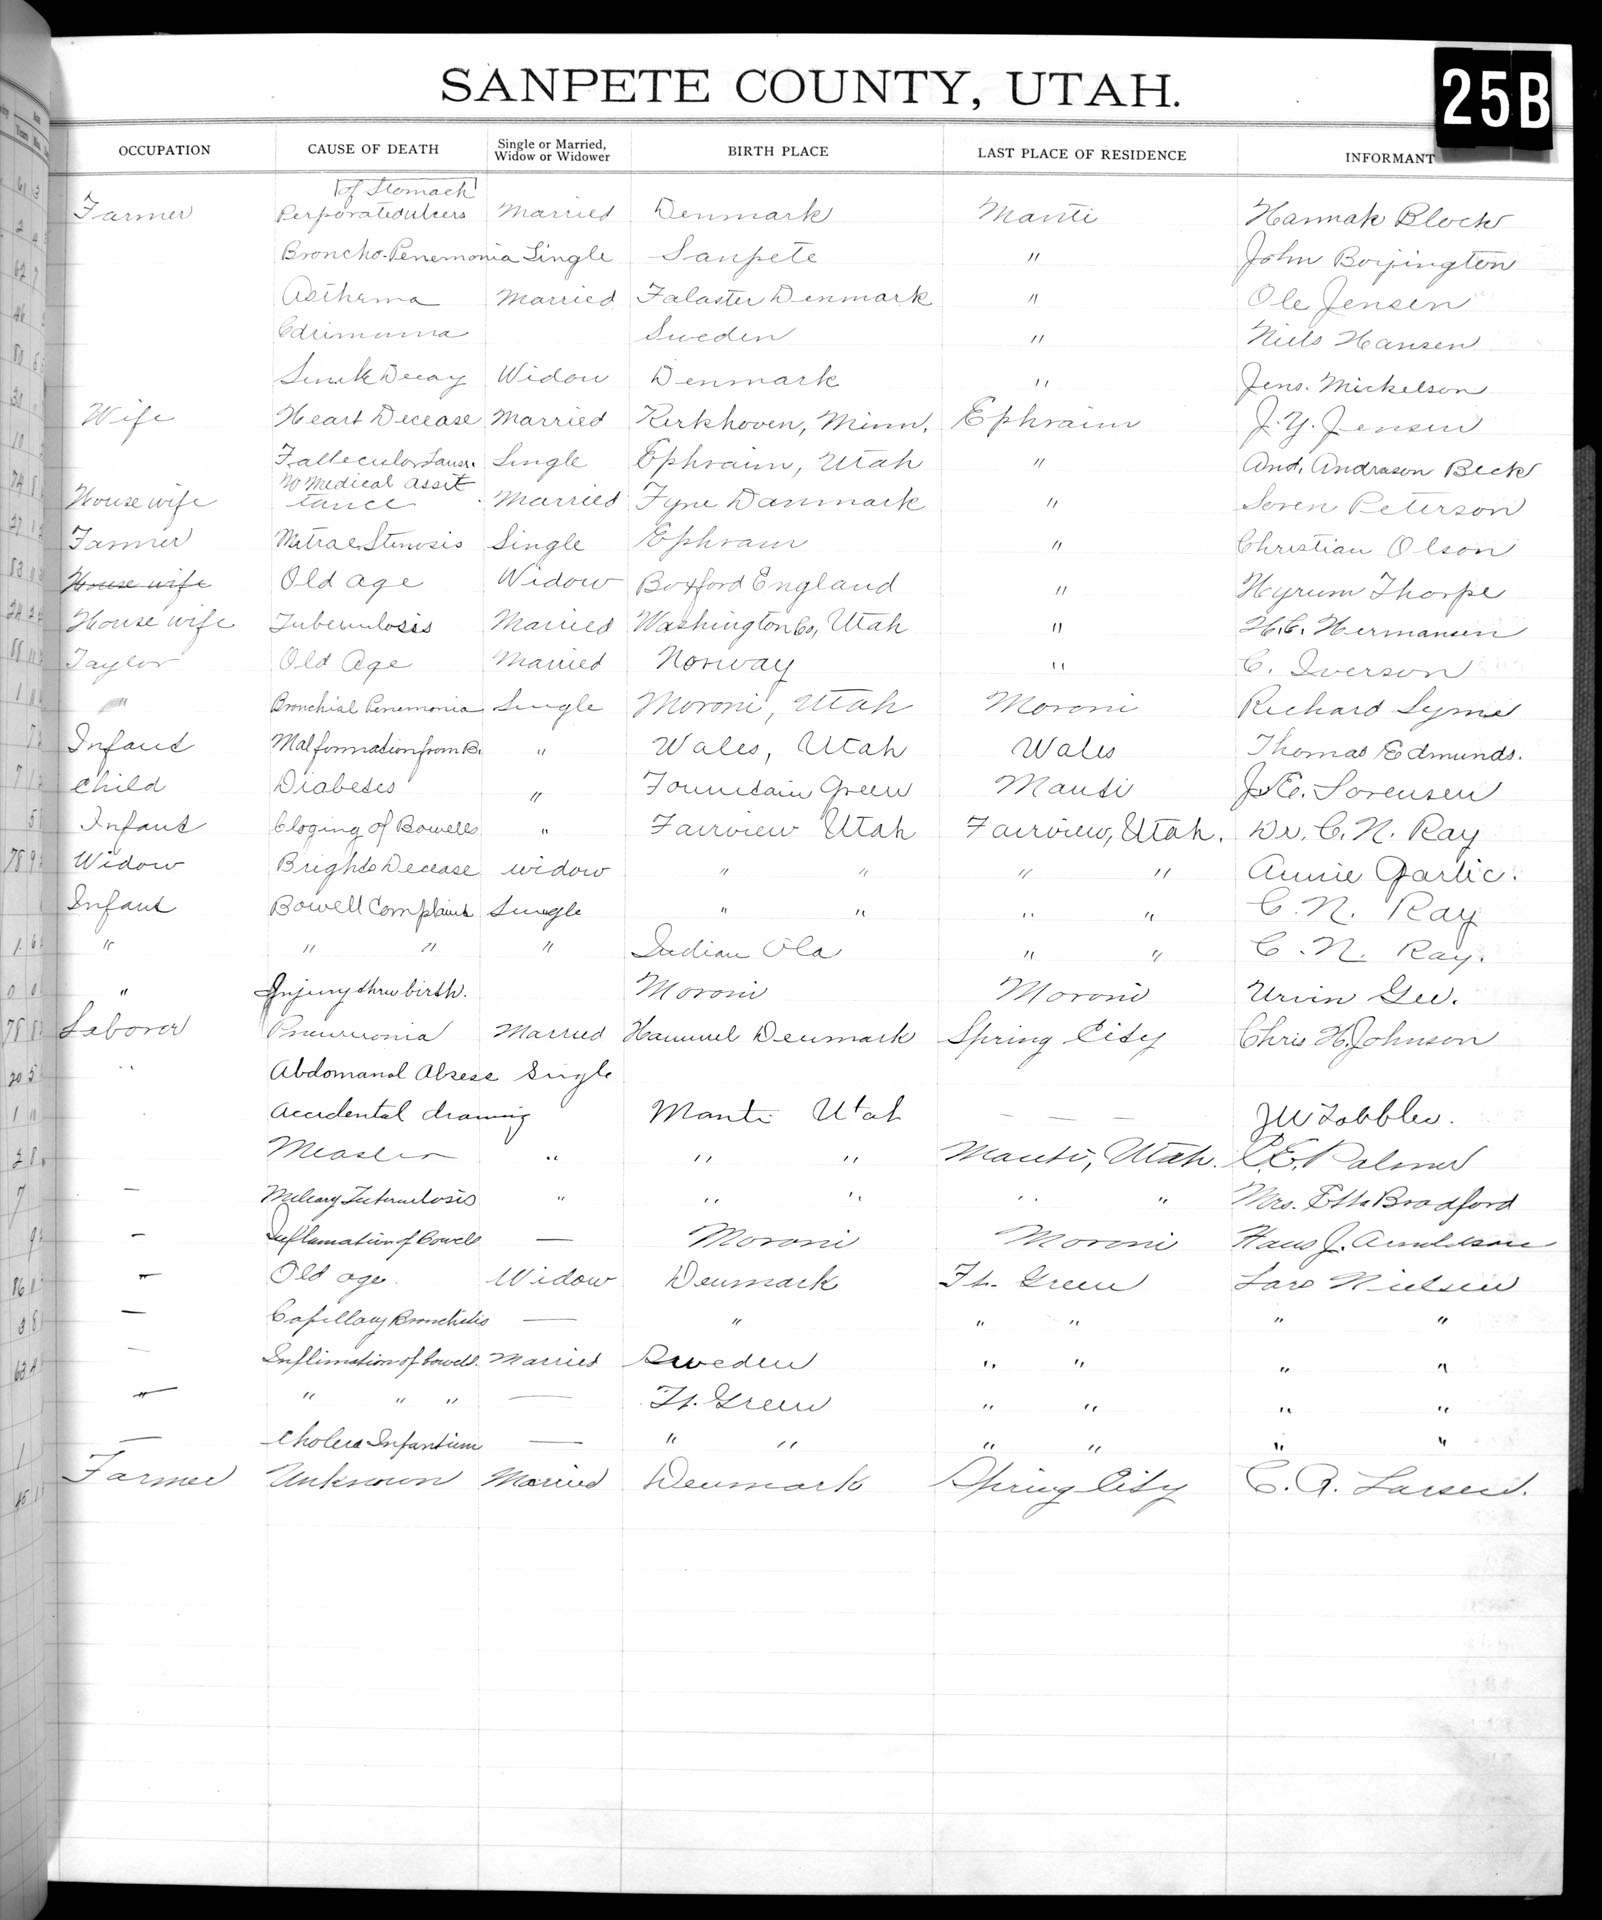 SANPETE COUNTY, UTAH.
25B
OCCUPATION CAUSE OF DEATH Single or Married, Widow or Widower BIRTH PLACE LAST PLACE OF RESIDENCE INFORMANT
of Stomach
Farmer Perporated ulcers Married Denmark Manti Hannah Block
Broncho-Penemonia Single Sanpete " John Boyington
Asthema Married Falaster Denmark " Ole Jensen
Sweden " Niels Hansen
Decay Widow Denmark " Jens. Mickelson
Wife Heart Decease Married Kirkhoven, Minn. Ephraim J. Y. Jensen
Single Ephraim, Utah " And. Andrason Beck
No Medical assit
House wife tance Married Fyne Danmark " Soren Peterson
Farmer Mitrae Stenosis Single Ephraim " Christian Olson
House wife Old age Widow Boxford England " Hyrum Thorpe
House wife Tuberculosis Married Washington Co, Utah " H.C. Hermansen
Taylor Old Age Married Norway " C. Iverson
" Bronchial Penemonia Single Moroni, Utah Moroni Richard Syme
Infant Malformation from B. " Wales, Utah Wales Thomas Edmunds.
Child Diabetes " Fountain Green Manti J.E. Sorensen
Infant Cloging of Bowells " Fairview Utah Fairview, Utah. Dr. C. N. Ray
Widow Brights Decease widow " " " " Annie Garlic.
Infant Bowell Complaint Single " " " " C. N. Ray
" " " " Indian Ola " " C. N. Ray.
" Injury thru birth. Moroni Moroni Urvin Gee.
Laborer Pneumonia Married Hammel Denmark Spring City Chris H. Johnson
" Abdomanal Absess Single
Accidental drawing Manti Utah — — —
Measles " " " Manti, Utah. C.E. Palmer
— Miliary Tuberculosis " " " " " Mrs. Etta Bradford
— Inflamation of Bowels — Moroni Moroni Hans J.
— Old age. Widow Denmark Ft. Green Lars Nielsen
— Capillary Bronchitis — " " " " "
— Inflimation of bowell. Married Sweden " " " "
— " " " — Ft. Green " " " "
— Cholera Infantium — " " " " " "
Farmer Unknown Married Denmark Spring City C. A. Larsen.